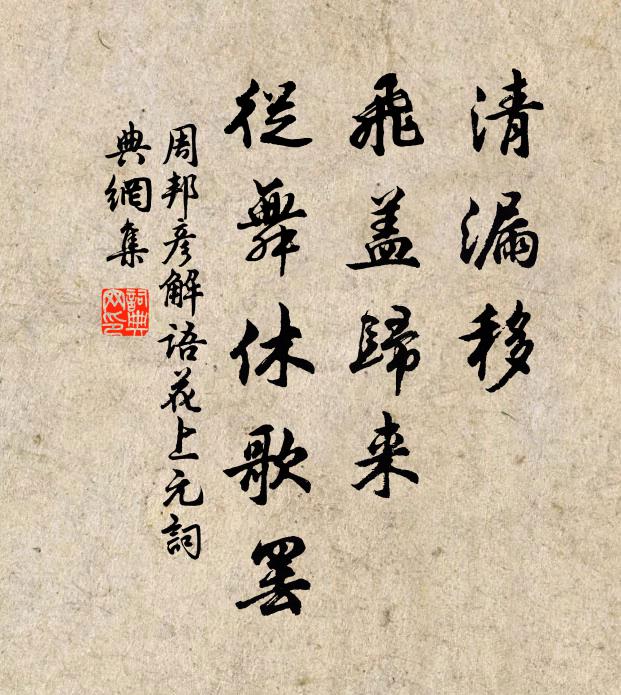 清漏移
飛盖歸来
從舞休歌罢
周邦彦解语花上元詞
典網集
詞典
网印